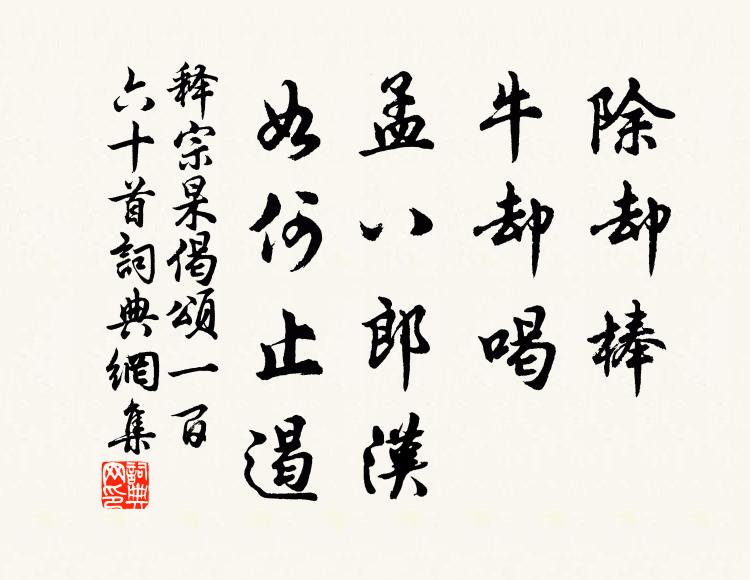 除却棒
牛却喝
孟八郎漢
如何止遏
释宗杲偈頌一百
六十首詞典網集
詞典
网印